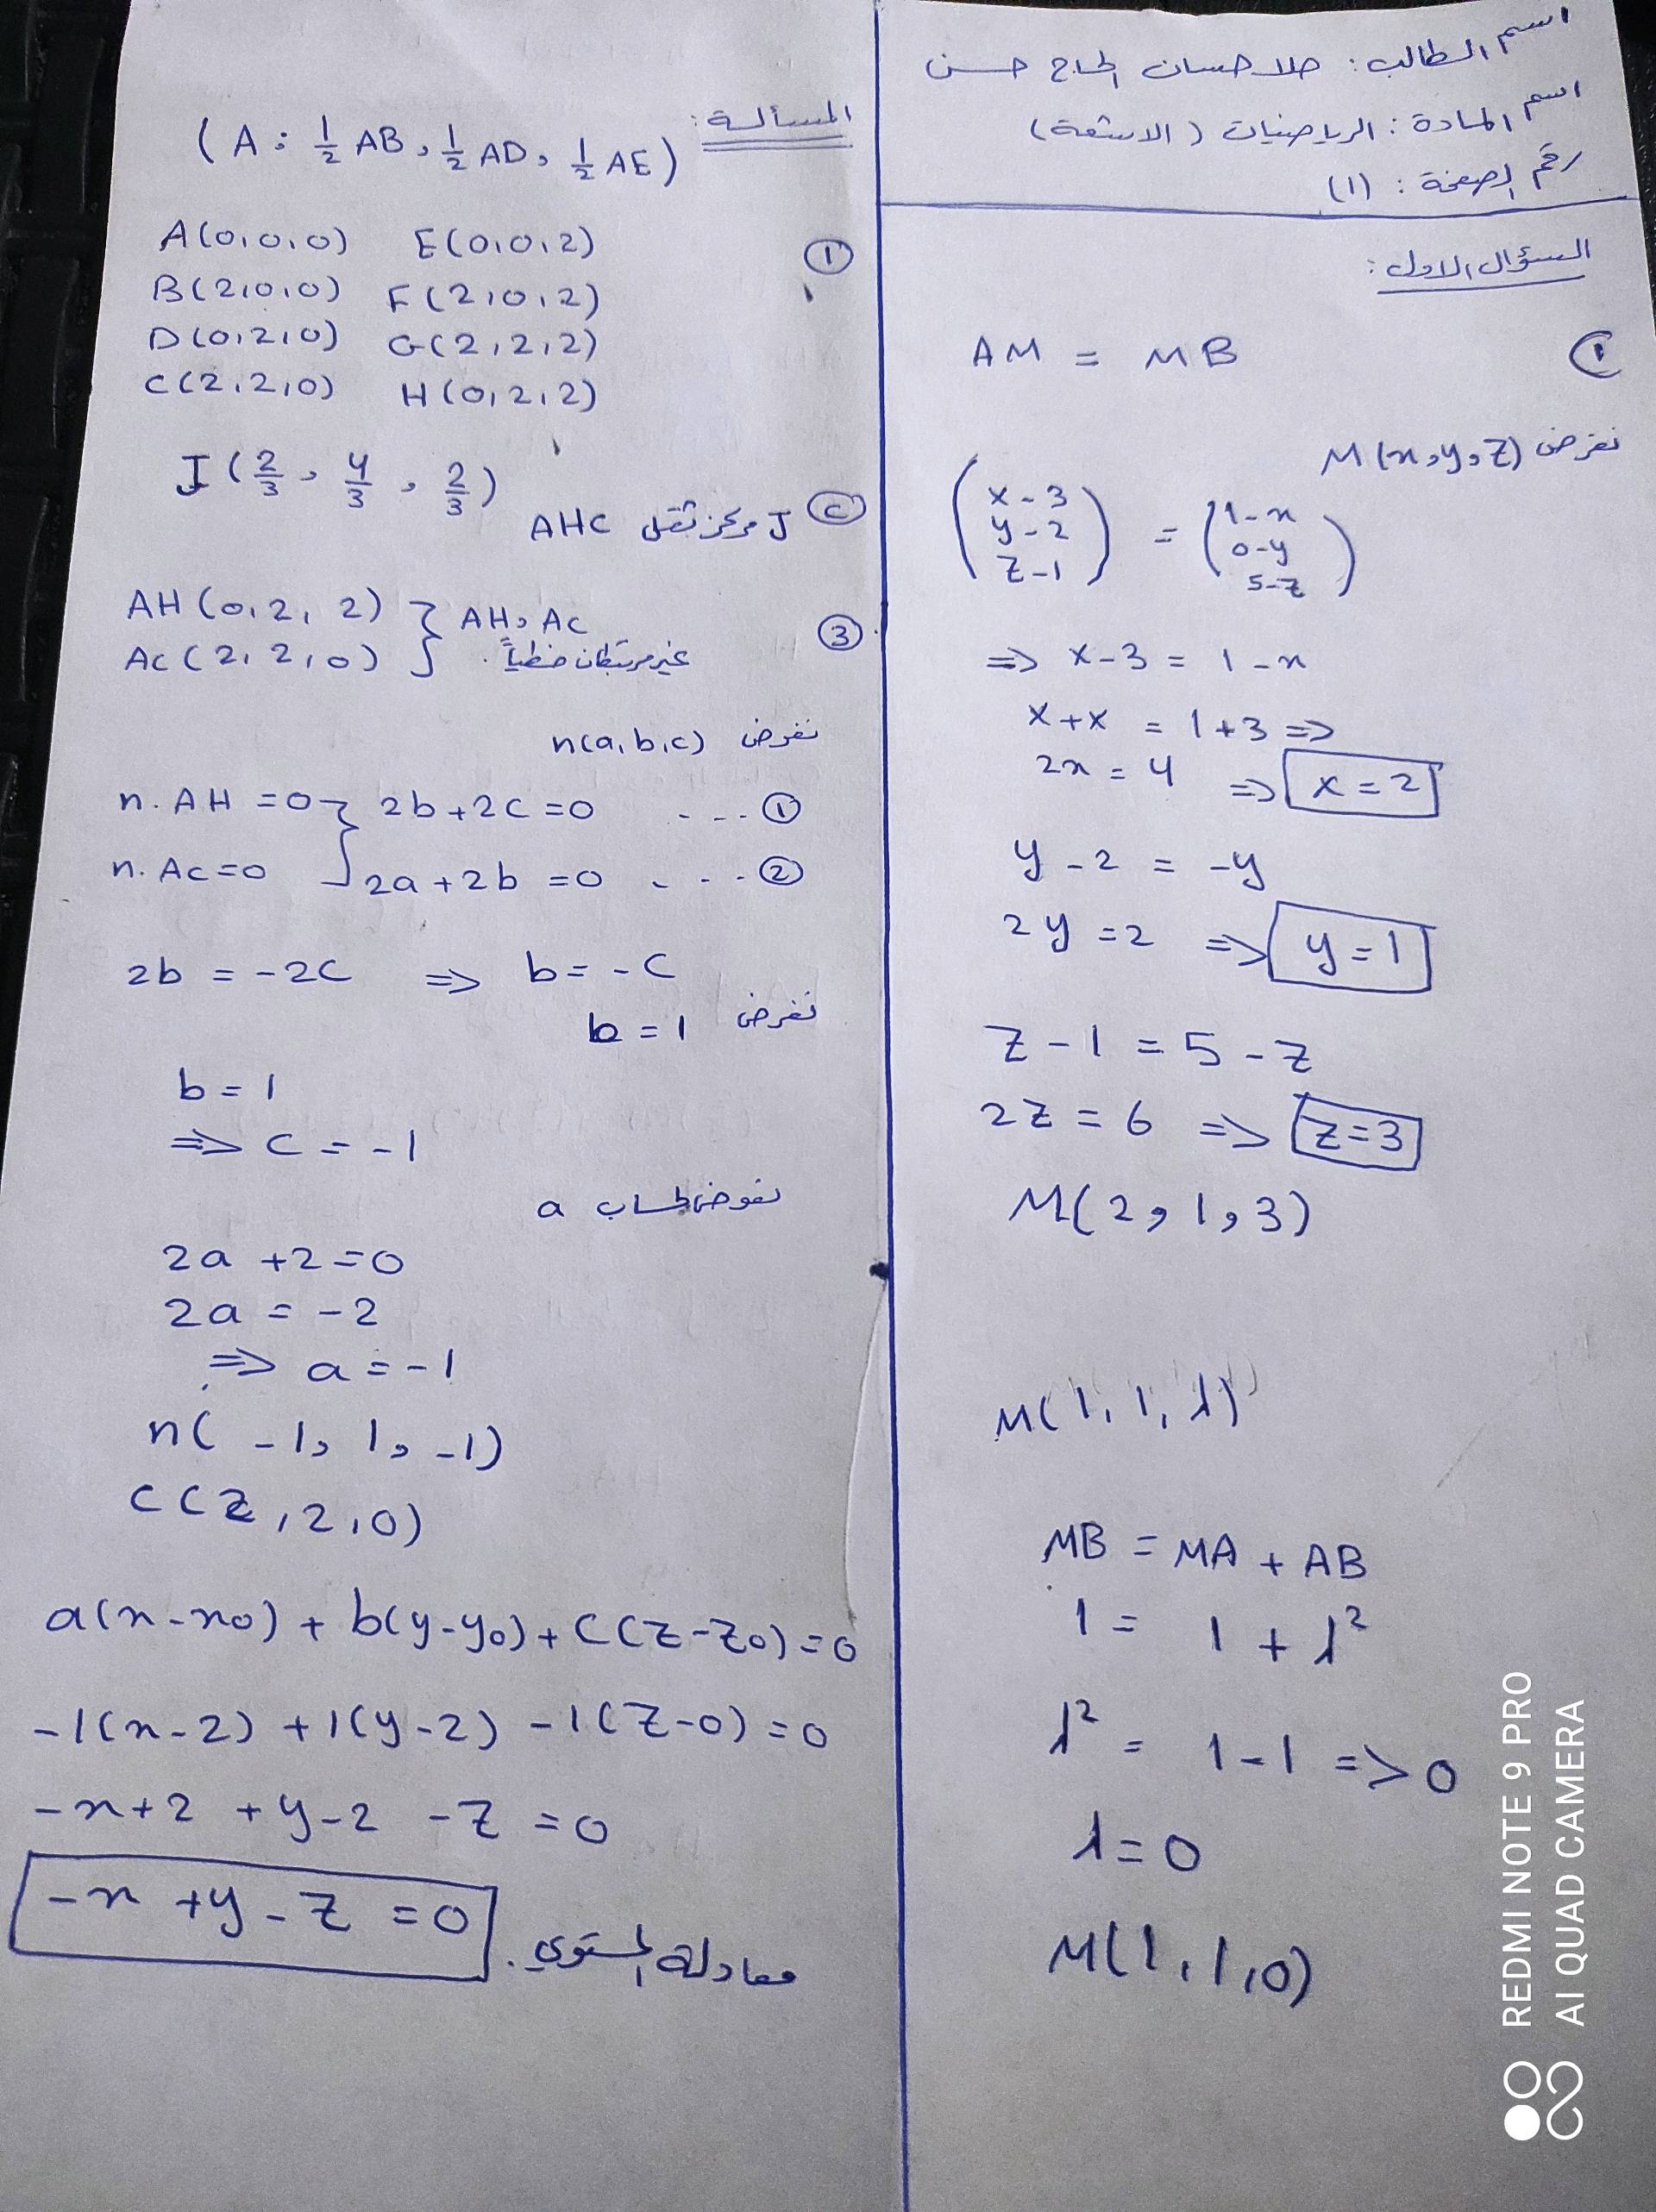 اسم الطالب: حلا حسان الحاج حسن
اسم المادة: الرياضيات (الاشعة)
رقم الصفحة: (1)
السؤال الاول:
①
AM = MB
نفرض M(x,y,z)
(x-3
y-2
z-1) = (1-x
0-y
5-z)
=> x-3 = 1-x
x+x = 1+3 =>
2x = 4 => x=2
y-2 = -y
2y = 2 => y=1
z-1 = 5-z
2z = 6 => z=3
M(2,1,3)
M(1,1,λ)
MB = MA + AB
1 = 1 + λ²
λ² = 1-1 => 0
λ = 0
M(1,1,0)
المسألة:
(A: ½ AB, ½ AD, ½ AE)
①
A(0,0,0) E(0,0,2)
B(2,0,0) F(2,0,2)
D(0,2,0) G(2,2,2)
C(2,2,0) H(0,2,2)
J(2/3, 4/3, 2/3)
② J مركز ثقل AHC
③
AH(0,2,2) } AH, AC
AC(2,2,0) } غير مرتبطان خطياً.
نفرض n(a,b,c)
n.AH=0 } 2b+2c=0 ... ①
n.AC=0 } 2a+2b=0 ... ②
2b = -2c => b = -c
نفرض b=1
b=1
=> c = -1
نعوض لحساب a
2a+2=0
2a = -2
=> a = -1
n(-1, 1, -1)
C(2,2,0)
a(x-x0) + b(y-y0) + c(z-z0) = 0
-1(x-2) + 1(y-2) - 1(z-0) = 0
-x+2 +y-2 -z = 0
-x +y -z = 0 معادلة المستوي.
REDMI NOTE 9 PRO
AI QUAD CAMERA